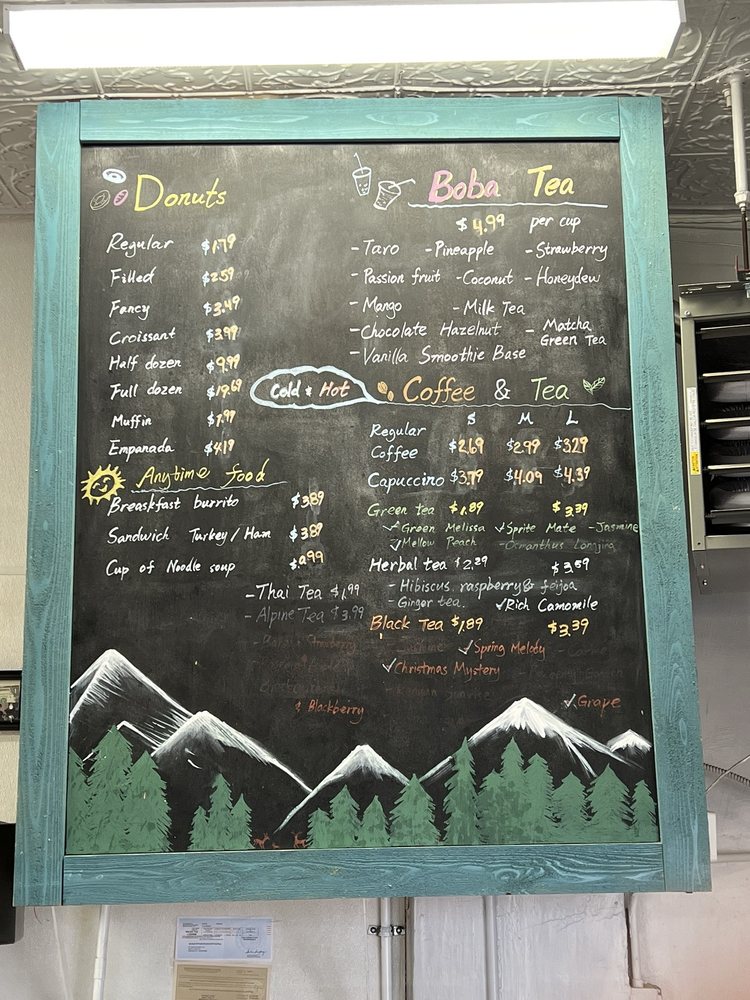 Donuts
Regular $1.79
Filled $2.59
Fancy $3.49
Croissant $3.99
Half dozen $9.99
Full dozen $19.69
Muffin
Empanada $4.19
Anytime food
Breakfast burrito $3.89
Sandwich Turkey/Ham $3.89
Cup of Noodle soup
- Thai Tea $1.99
- Alpine Tea $3.99
& Blackberry
Boba Tea
$4.99 per cup
- Taro - Pineapple - Strawberry
- Passion fruit - Coconut - Honeydew
- Mango - Milk Tea
- Chocolate Hazelnut - Matcha Green Tea
- Vanilla Smoothie Base
Cold & Hot
Coffee & Tea
S M L
Regular Coffee $2.69 $2.99 $3.29
Capuccino $3.79 $4.09 $4.39
Green tea $1.89 $3.39
✓ Green Melissa ✓ Sprite Mate - Jasmine
✓ Mellow Peach - Osmanthus
Herbal tea $2.29 $3.59
- Hibiscus, raspberry & feijoa
- Ginger tea ✓ Rich Camomile
Black Tea $1.89 $3.39
✓ Spring Melody
✓ Christmas Mystery
✓ Grape